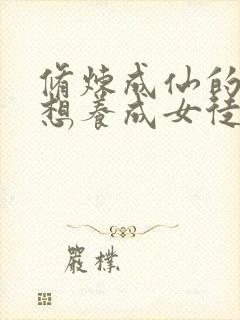 脩煉成仙的
想養成女徒
嚴樸